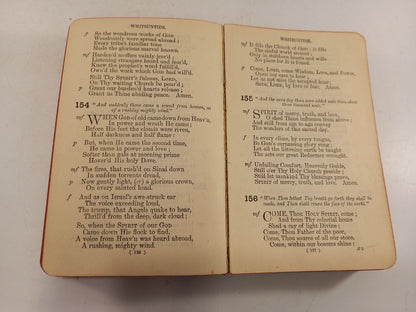 WHITSUNTIDE.
p So the wondrous works of GOD
Wondrously were spread abroad;
Every tribe's familiar tone
Made the glorious marvel known.
mf Harden'd scoffers vainly jeer'd;
Listening strangers heard and fear'd,
Knew the prophet's word fulfill'd,
Own'd the work which GOD had will'd.
Still Thy SPIRIT'S fulness, LORD,
On Thy waiting Church be pour'd!
p Grant our burden'd hearts release,
Grant us Thine abiding peace. Amen.
154 "And suddenly there came a sound from heaven, as
of a rushing mighty wind."
mf WHEN GOD of old came down from Heav'n,
In power and wrath He came;
Before His feet the clouds were riven,
Half darkness and half flame:
p But, when He came the second time,
He came in power and love;
Softer than gale at morning prime
Hover'd His holy Dove.
mf The fires, that rush'd on Sinai down
In sudden torrents dread,
p Now gently light, a glorious crown,
On every sainted head.
f And as on Israel's awe-struck ear
The voice exceeding loud,
The trump, that Angels quake to hear,
Thrill'd from the deep, dark cloud;
So, when the SPIRIT of our GOD
Came down His flock to find,
A voice from Heav'n was heard abroad,
A rushing, mighty wind.
( 136 )
WHITSUNTIDE.
mf It fills the Church of GOD; it fills
The sinful world around;
Only in stubborn hearts and wills
No place for It is found.
p Come, LORD, come Wisdom, Love, and Power,
Open our ears to hear;
Let us not miss the accepted hour;
Save, LORD, by love or fear. Amen.
155 "The same day there were added unto them about
three thousand souls."
mf SPIRIT of mercy, truth, and love,
O shed Thine influence from above;
And still from age to age convey
The wonders of this sacred day.
f In every clime, by every tongue,
Be GOD'S surpassing glory sung;
Let all the listening earth be taught
The acts our great Redeemer wrought.
mf Unfailing Comfort, Heavenly Guide,
Still o'er Thy Holy Church preside;
Still let mankind Thy blessings prove,
SPIRIT of mercy, truth, and love. Amen.
156 "When Thou lettest Thy breath go forth they shall be
made, and Thou shalt renew the face of the earth."
mf COME, THOU HOLY SPIRIT, come;
And from Thy celestial home
Shed a ray of light Divine;
Come, Thou Father of the poor,
Come, Thou source of all our store,
Come, within our bosoms shine:
( 137 )